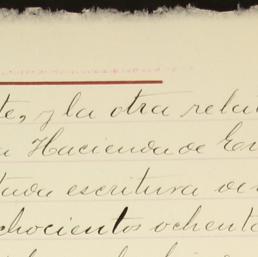 te, y la otra rela
a Hacienda de En
tada escritura de
chocientos ochent